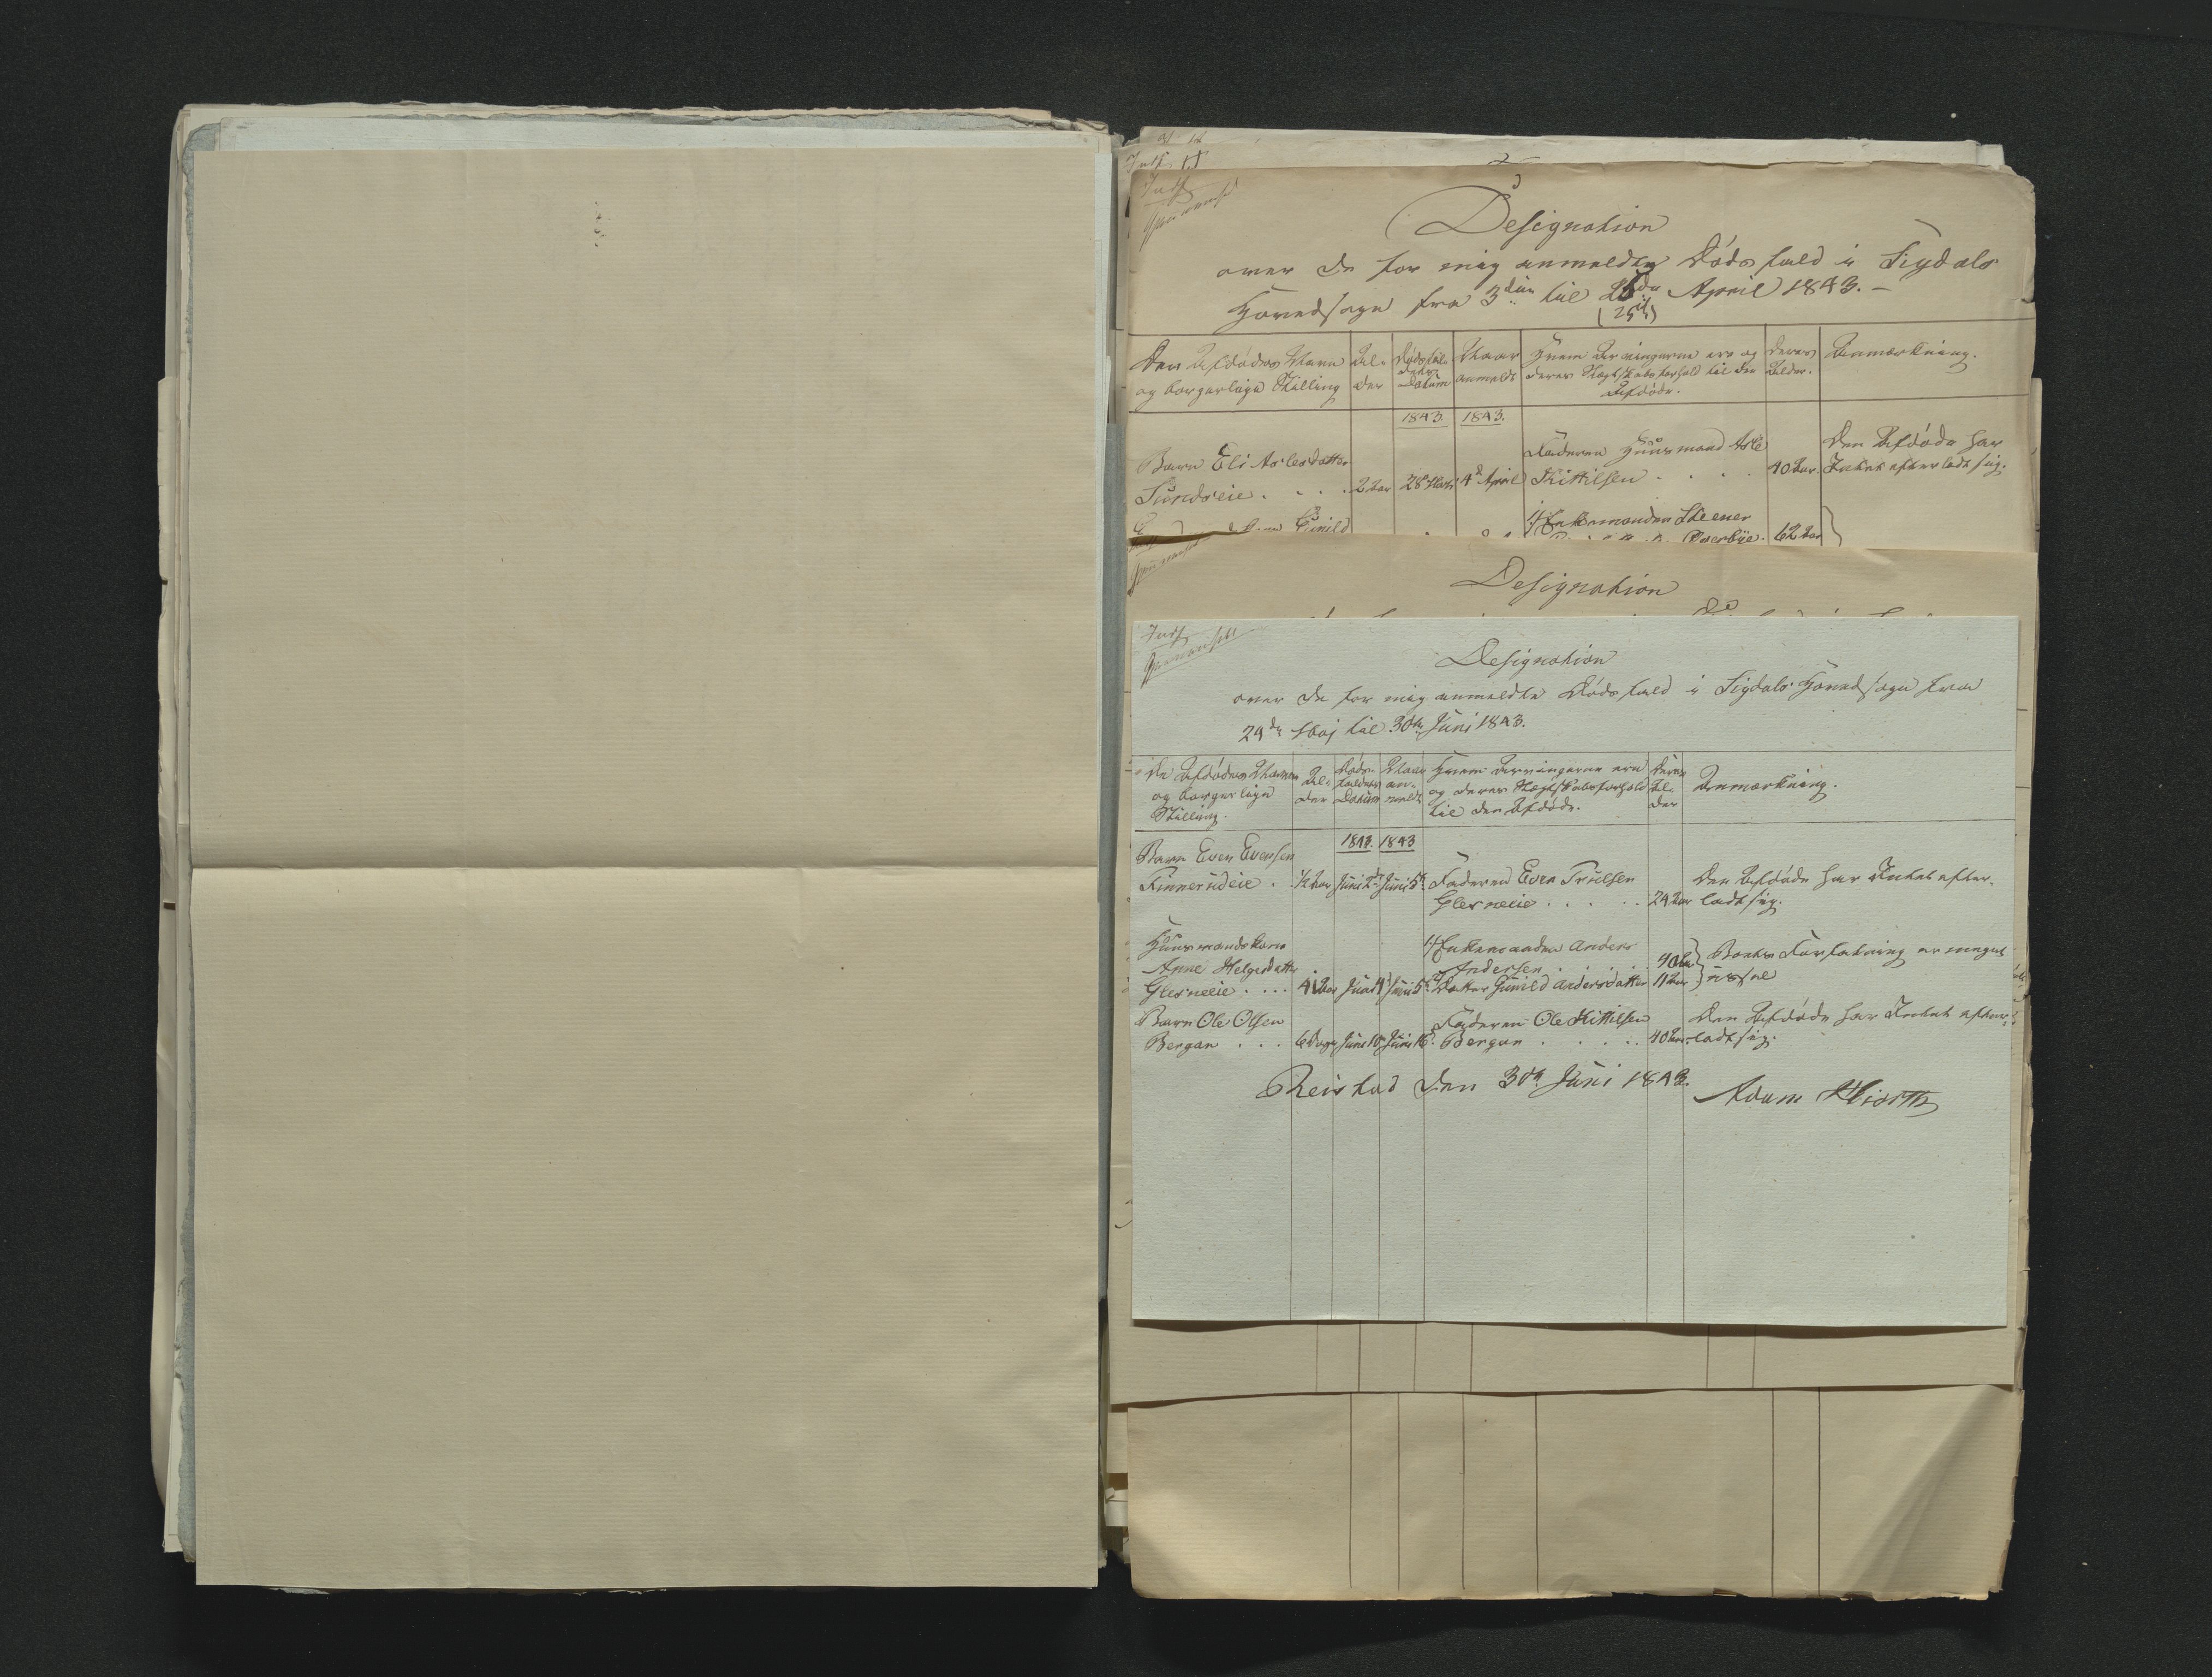 Designation
over de for mig anmeldte Dødsfald i Sigdals
Hovedsogn fra 3die til April 1843.-
(25de)
Den Afdødes Navn
og borgerlige Stilling
Al-
der
Dødsfal-
dets
Datum
Naar
anmeldt
Hvem Arvingerne ere og
deres Slægtskabsforhold til den
Afdøde.
Deres
Alder.
Anmærkning.
1843. 1843.
Barn Eli Aslesdatter
Sundseie . . . . 2 Aar 28 Marts 4d April
Faderen Huusmand Asle
Kittilsen . . . . 40 Aar.
Den Afdøde har
Intet efterladt sig.
Gunild
1/ Enkemanden Steener
Overbye. 62 Aar
Designation
Designation
over de for mig anmeldte Dødsfald i Sigdals Hovedsogn fra
29de Maj til 30te Juni 1843.
De Afdødes Navne
og borgerlige
Stilling.
Al-
der
Døds-
faldets
Datum
Naar
an-
meldt
Hvem Arvingerne ere
og deres Slægtskabsforhold
til den Afdøde.
Deres
Al-
der
Anmærkning.
1843. 1843
Barn Even Evensen
Finnerudeie . ½ Aar Juni 2d Juni 5te
Faderen Even Truelsen
Glesneeie . . . . . 29 Aar
Den Afdøde har Intet efter-
ladt sig.
Huusmandskone
Anne Helgesdatter
Glesneeie . . . . 41 Aar Juni 4d Juni 5te
1/ Enkemanden Anders
Andersen . . . . 40 Aar
2/ Datter Gunild Andersdatter 11 Aar
Boets Forfatning er meget
ussel
Barn Ole Olsen
Bergan . . . 6 Dage Juni 10de Juni 16de
Faderen Ole Kittilsen
Bergan . . . . . 40 Aar
Den Afdøde har Intet efter-
ladt sig.
Reistad den 30te Juni 1843.
Adam Hiorth